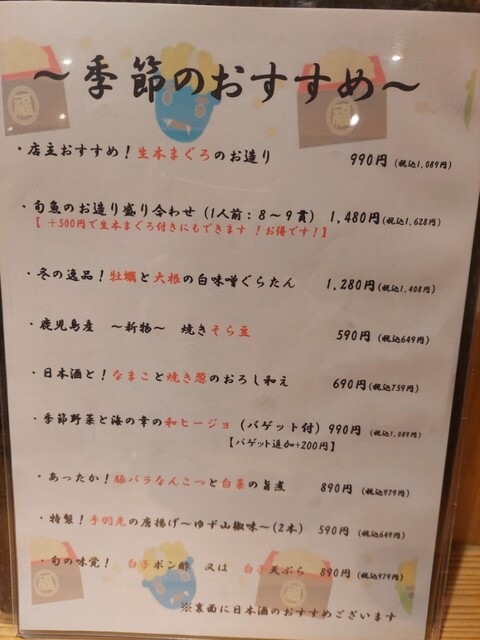 ～季節のおすすめ～
・店主おすすめ！生本まぐろのお造り 990円(税込1,089円)
・旬魚のお造り盛り合わせ(1人前：8～9貫) 1,480円(税込1,628円)
【 +500円で生本まぐろ付きにもできます ！お得です！】
・冬の逸品！牡蠣と大根の白味噌ぐらたん 1,280円(税込1,408円)
・鹿児島産 ～新物～ 焼きそら豆 590円(税込649円)
・日本酒と！なまこと焼き葱のおろし和え 690円(税込759円)
・季節野菜と海の幸の和ヒージョ(バゲット付) 990円 (税込1,089円)
【バゲット追加+200円】
・あったか！豚バラなんこつと白菜の旨煮 890円 (税込979円)
・特製！手羽先の唐揚げ～ゆず山椒味～(2本) 590円 (税込649円)
・旬の味覚！ 白子ポン酢 又は 白子天ぷら 890円(税込979円)
※裏面に日本酒のおすすめございます
福
福
福